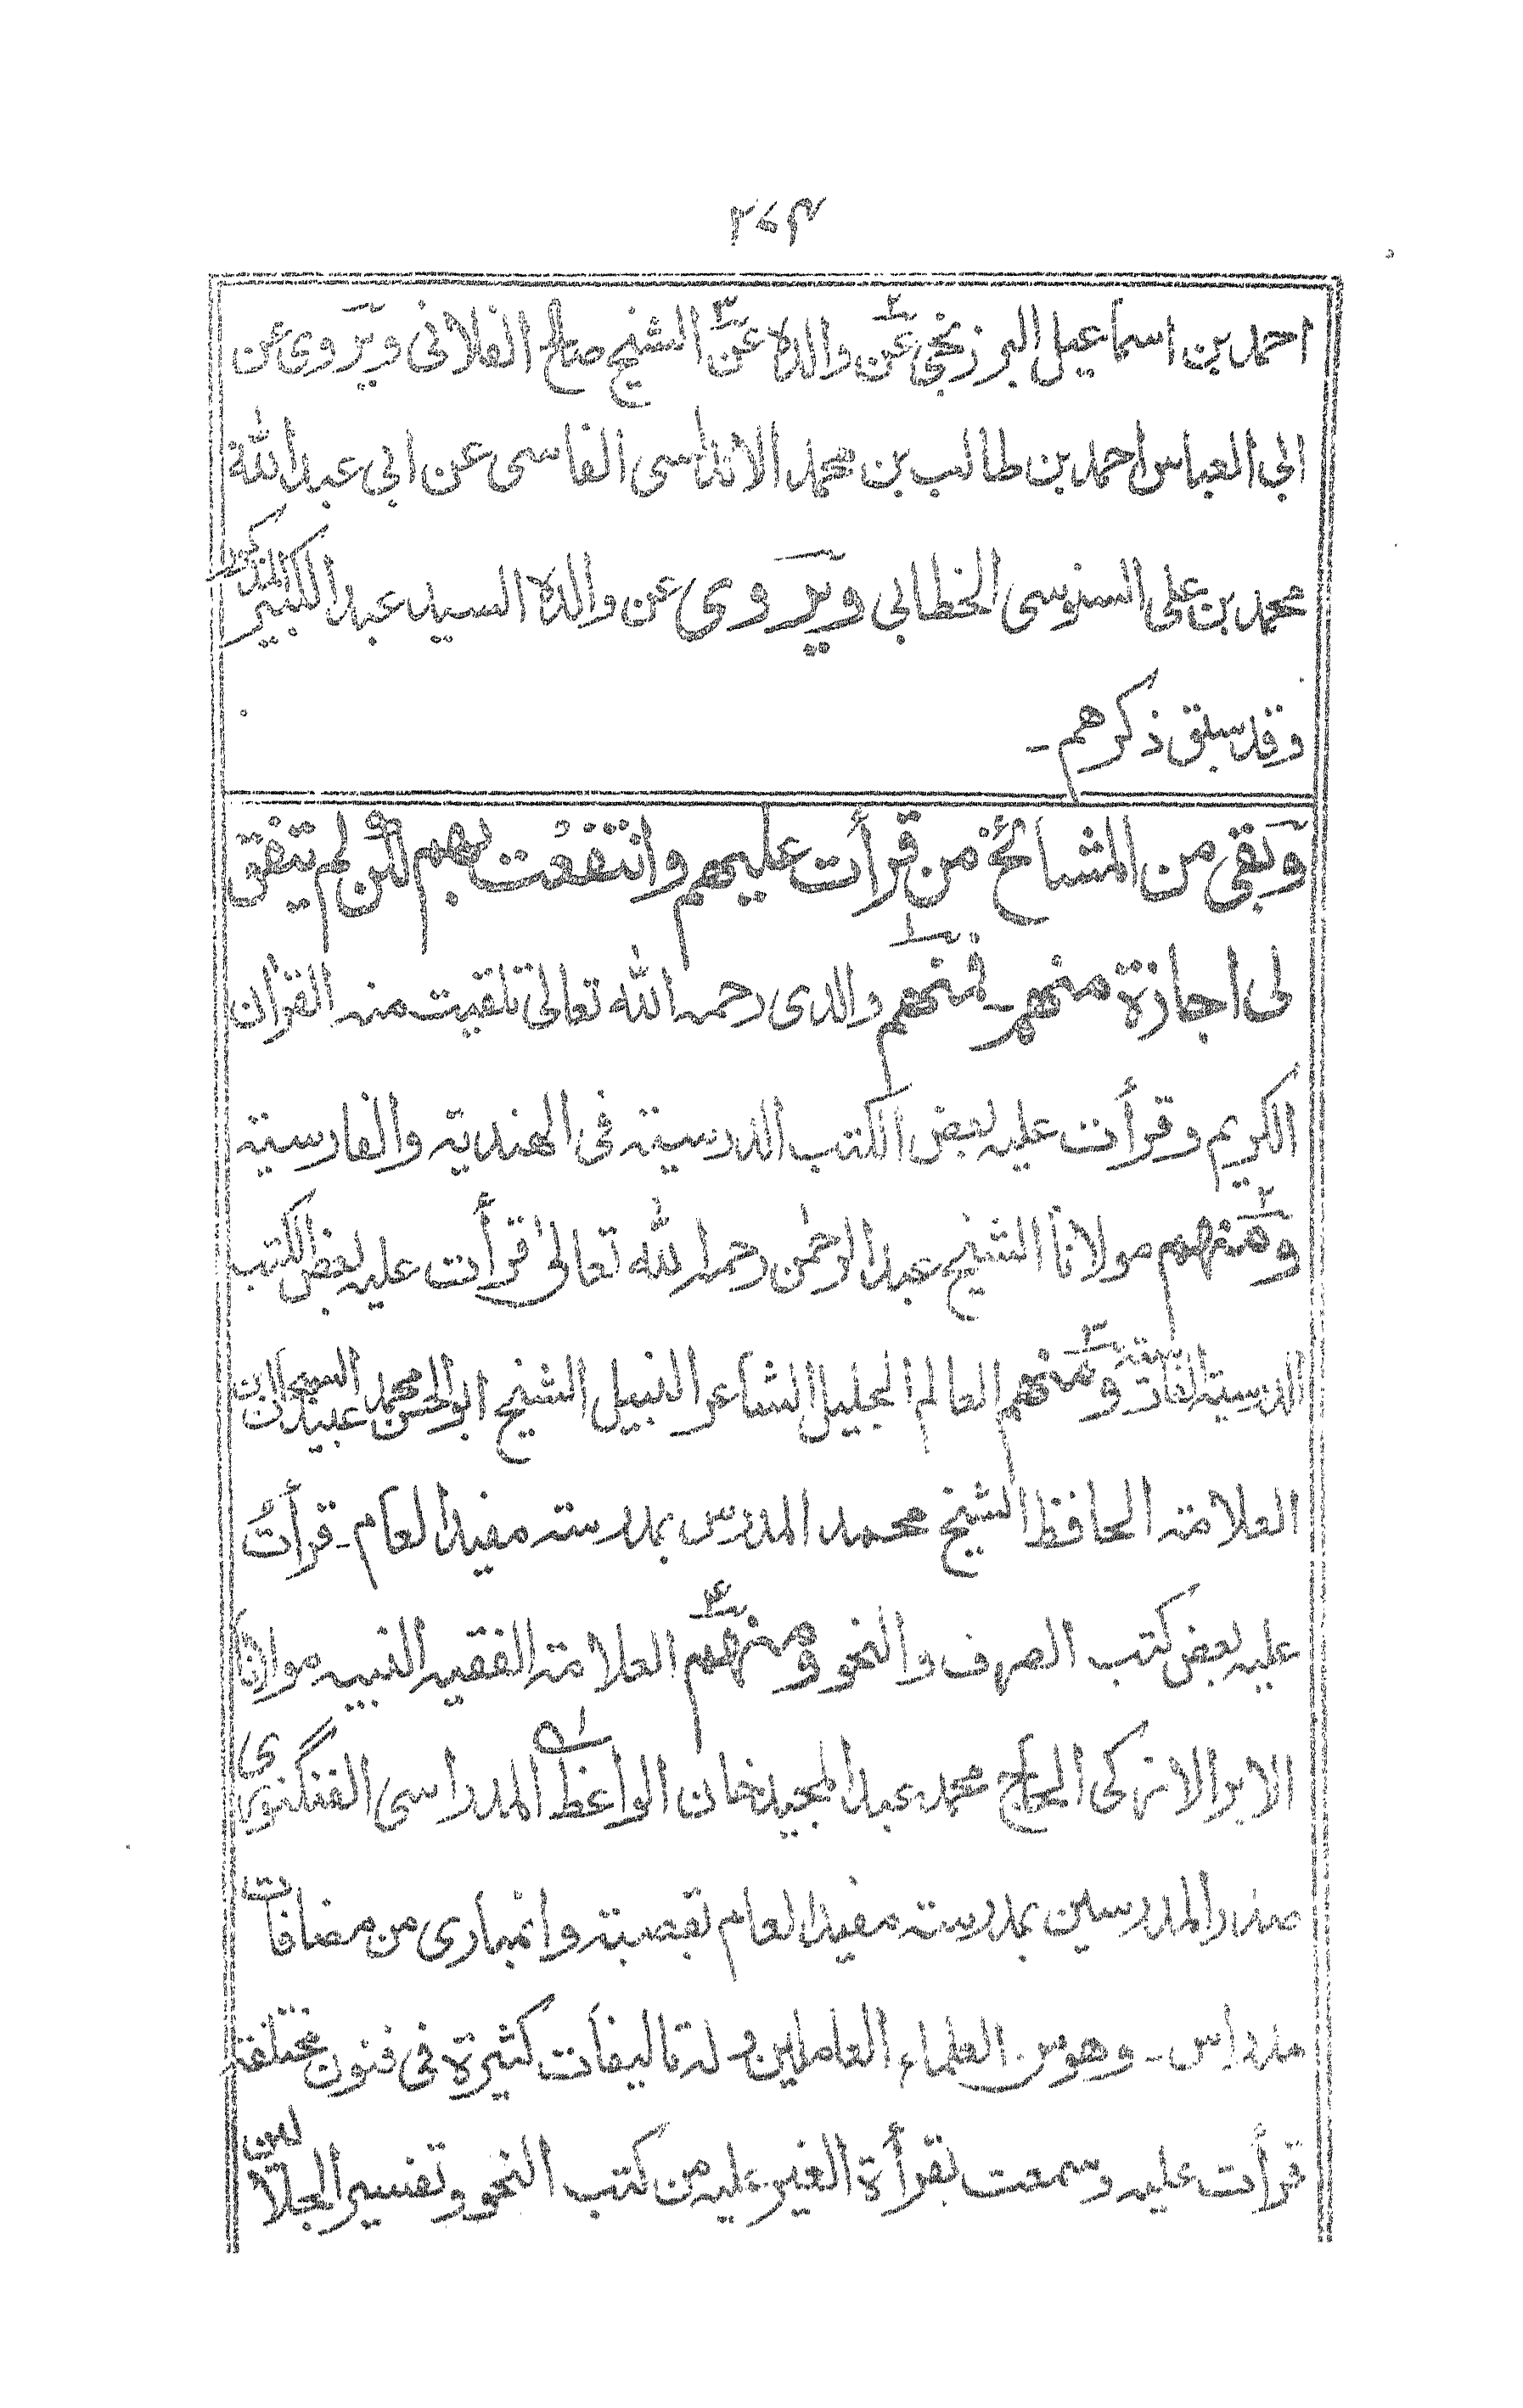 ٢٧٣
احمد بن اسماعيل البرزنجى عن٢ والده عن٣ الشيخ صالح الفلانى ويروى عن
ابى العباس احمد بن طالب بن محمد الفاسى عن ابى عبد الله
محمد بن على السنوسى الخطابى ويروى عن والده السيد عبد الكبير المذكور
وقد سبق ذكرهم ـ
وبقى من المشائخ من قرأت عليهم وانتفعت بهم لكن لم يتفق
لى اجازة منهم ـ فمنهم١ والدى رحمه الله تعالى تلقيت منه القرآن
الكريم وقرأت عليه بعض الكتب الدرسية فى الهندية والفارسية
ومنهم٢ مولانا الشيخ عبد الرحمٰن رحمه الله تعالىٰ قرأت عليه بعض الكتب
الدرسية الفارسية ومنهم٣ العالم الجليل الشاعر النبيل الشيخ ابو الحسن محمد عبيد السبحان ابن
العلامة الحافظ الشيخ محمد المدرس بمدرسة مفيد العام ـ قرأتُ
عليه بعض كتب الصرف والنحو ومنهم٤ العلامة الفقيه النبيه مولانا
الابر الازكى الحاج محمد عبد المجيد خان الواعظ المدراسى الفنگنورى
صدر المدرسين بمدرسة مفيد العام بقصبة وانمبارى من مضافات
مدراس ـ وهو من العلماء العاملين وله تاليفات كثيرة فى فنون مختلفة
قرأت عليه وسمعت بقرأة الغير عليه من كتب النحو وتفسير الجلالين